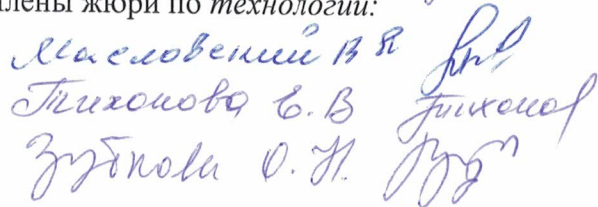 лены жюри по технологии:
Масловский В Я
Тихонова Е. В Тихонов
Зубкова О. Н. Зуб